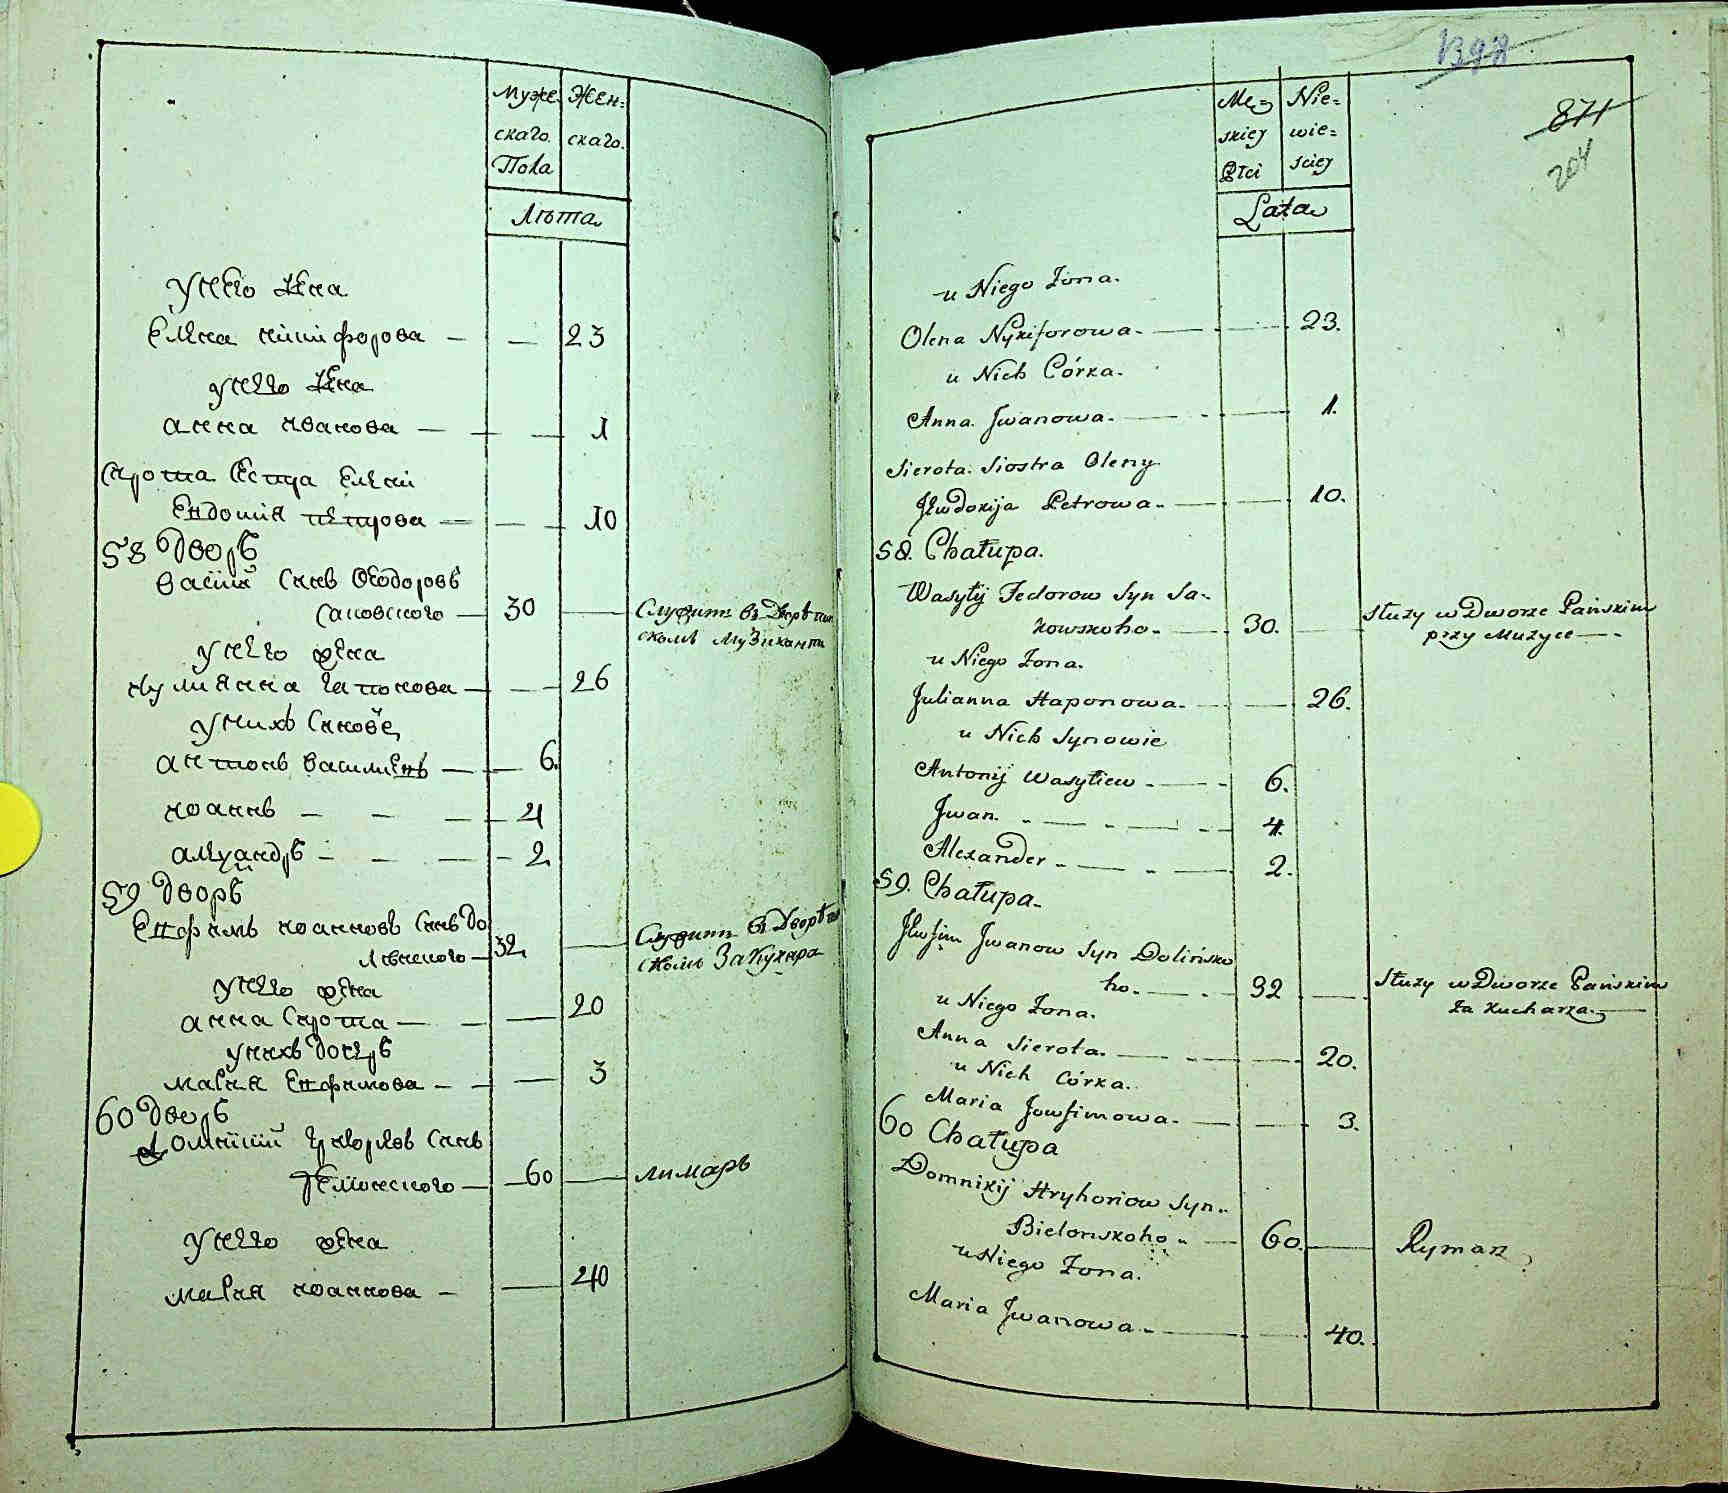 Муже скаго Пола
Жен= скаго.
Лѣта
у него жена
Елена Никифорова — — 23
у него жена
Анна Иванова — — — 1
Сирота Сестра Елени
Евдокия Петрова — — — 10
58 Дворъ
Василий Синъ Феодоровъ
Саковского — 30 — Служитъ въ Дворѣ пан
скомъ Музикантом
у него жена
Иулианна Гапонова — — 26
у нихъ Синове
Антонъ Василиевъ — — 6.
Иоаннъ — — — 4
Александръ — — — 2
59 Дворъ
Евфимъ Иоанновъ Синъ До
линского — 32 — Служитъ въ Дворѣ пан
скомъ За Кухара
у него жена
Анна Сирота — — — 20
у нихъ дочеръ
Мария Евфимова — — 3
60 Дворъ
Домникий Григориевъ Синъ
— 60 — лимаръ
у него жена
Мария Иоаннова — — 40
1398
871
204
Męz= skiey Płci
Nie= wie= sciey
Lata
u Niego Zona.
Olena Nykiforowa. — — 23.
u Nich Córka.
Anna Jwanowa. — — 1.
Sierota Siostra Oleny
Jewdokija Petrowa. — — 10.
58. Chałupa.
Wasylij Fedorow Syn Sa-
kowskoho. — 30. — Służy w Dworze Pańskim
przy Muzyce —.
u Niego Zona.
Julianna Haponowa. — — 26.
u Nich Synowie
Antonij Wasyliew — — 6.
Jwan. — — 4.
Alexander — — 2.
59. Chałupa.
Jewfim Jwanow Syn Dolińsko
ho. — 32 — Służy w Dworze Pańskim
za Kucharza. —
u Niego Zona.
Anna Sierota. — — 20.
u Nich Córka.
Maria Jewfimowa. — — 3.
60 Chałupa
Domnikij Hryhoriow Syn
Bielonskoho — 60. — Rymarz
u Niego Zona.
Maria Jwanowa. — — 40.